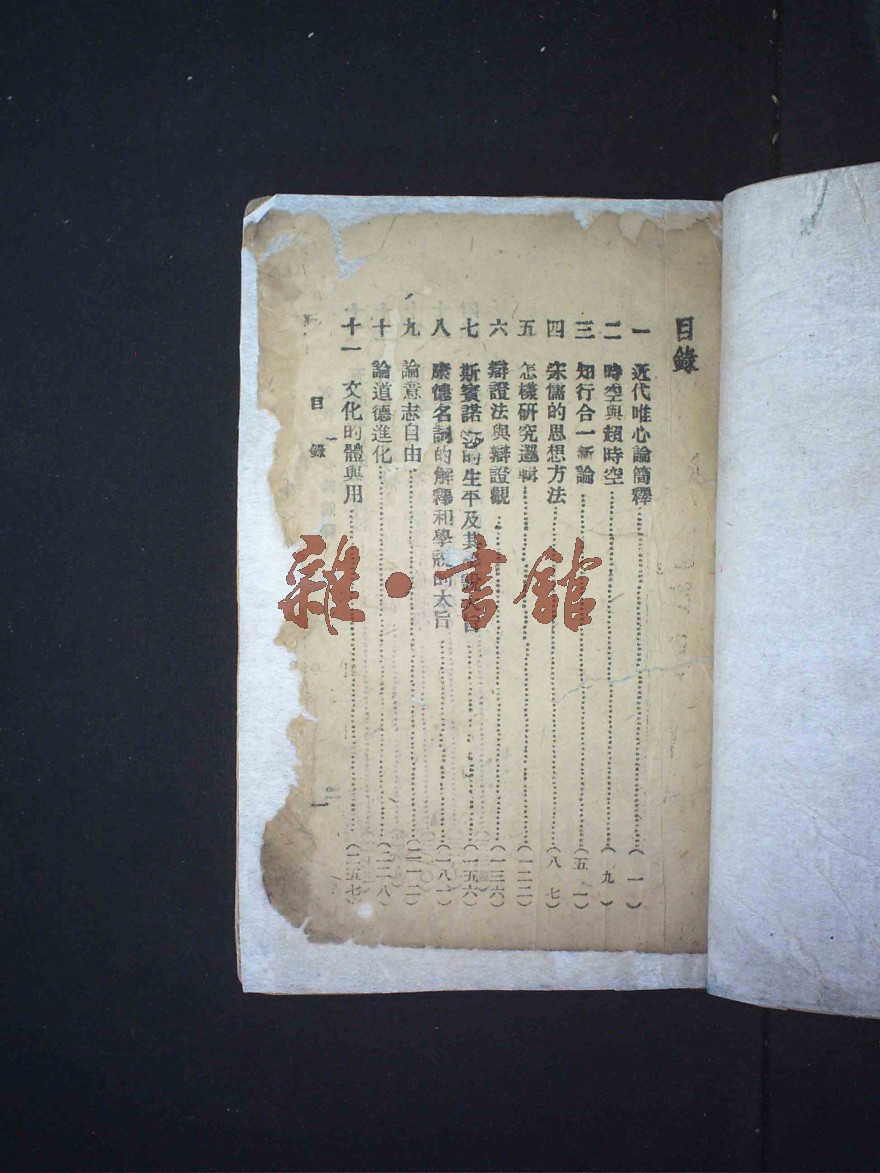 目錄
一 近代唯心論簡釋(一)
二 時空與超時空(九)
三 知行合一新論(五一)
四 宋儒的思想方法(八七)
五 怎樣研究邏輯(一二二)
六 辯證法與辯證觀(一三六)
七 斯賓諾莎的生平及其大旨(一五六)
八 康德名詞的解釋和學說的大旨(一八一)
九 論意志自由(二一二)
十 論道德進化(二二八)
十一 文化的體與用(二五七)
目錄
一
雜·書館